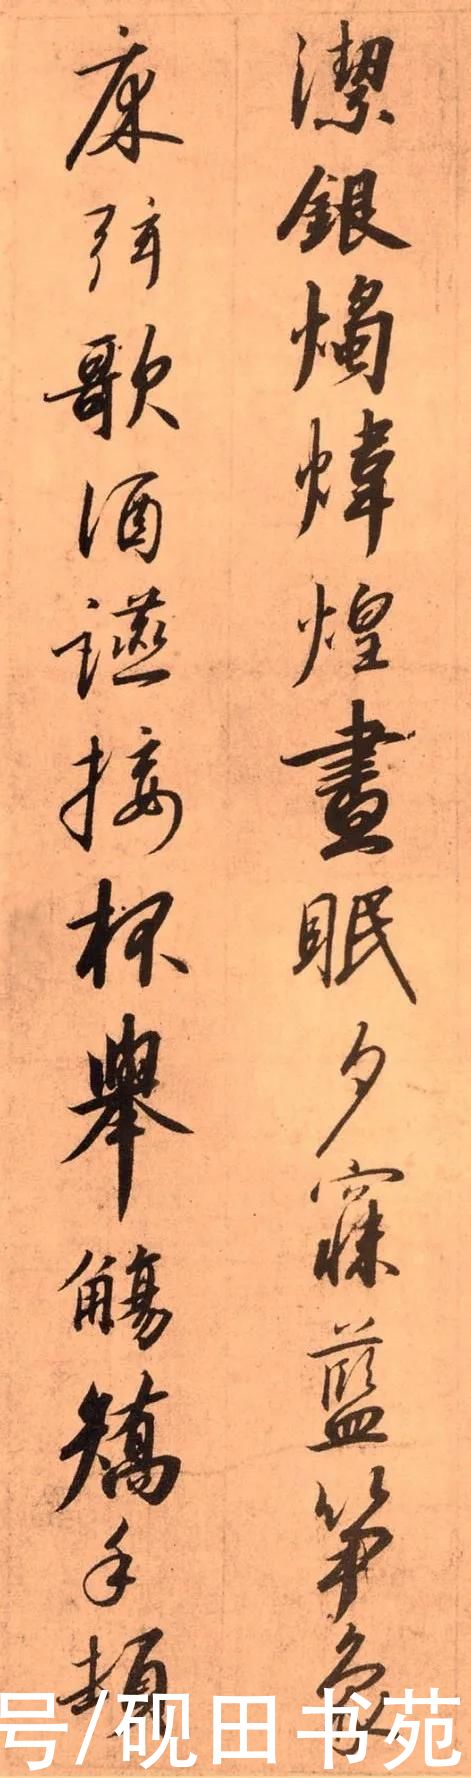 潔銀燭煒煌晝眠夕寐藍笋象
床弦歌酒讌接杯舉觴矯手頓
号/砚田书苑